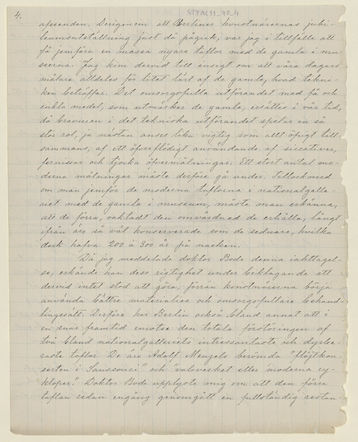 4.
afseenden. Derigenom att Berliner konstnärernas jubi-
leumsutställning just då pågick, var jag i tillfälle att
få jemföra en massa nyare taflor med de gamla i mu-
seerna. Jag kom dervid till insigt om att våra dagars
målare alldeles för litet lärt af de gamla, hvad tekni-
ken beträffar. Det omsorgsfulla utförandet med få och
enkla medel, som utmärker de gamla, ersättes i vår tid,
då bravuren i det tekniska utförandet spelar en så
stor rol, ja nästan anses lika vigtig som allt öfrigt till-
sammans, af ett öfverflödigt användande af siccativer,
fernissor och tjocka öfvermålningar. Ett stort antal mo-
derna målningar måste derföre gå under. Tillochmed
om man jemför de moderna taflorna i nationalgalle-
riet med de gamla i museum, måste man erkänna,
att de förra, oaktadt den omvårdnad de erhålla, långt
ifrån äro så väl konserverade som de sednare, hvilka
dock hafva 200 à 300 år på nacken.
Då jag meddelade doktor Bode denna iakttagel-
se, erkände han dess rigtighet under beklagande att
dervid intet stod att göra, förrän konstnärerna börja
använda bättre materialier och omsorgsfullare behand-
lingssätt. Derföre har Berlin också bland annat att i
en snar framtid emotse den totala förstöringen af
två bland nationalgalleriets intressantaste och dyrba-
raste taflor. De äro Adolf Menzels berömda "Flöjtkon-
serten i Sanssouci" och "valsverket eller moderna cy-
kloper". Doktor Bode upplyste mig om att den förra
taflan redan engång genomgått en fullständig restau-